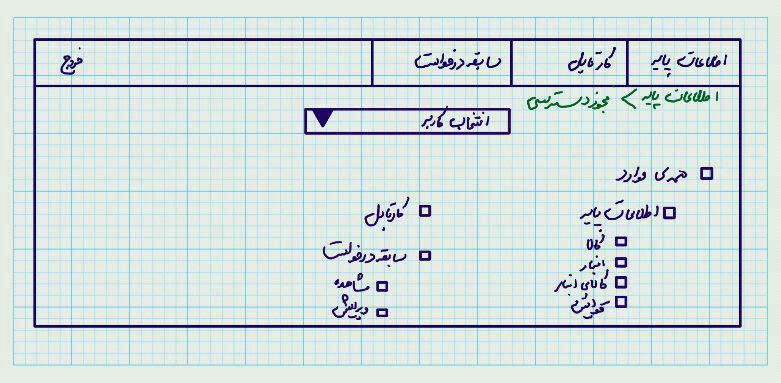 اطلاعات پایه
کارتابل
سابقه درخواست
خروج
اطلاعات پایه > مجوز دسترسی
انتخاب کاربر
همه‌ی موارد
اطلاعات پایه
کالا
انبار
کالای انبار
کارتابل
سابقه درخواست
مشاهده
ویرایش